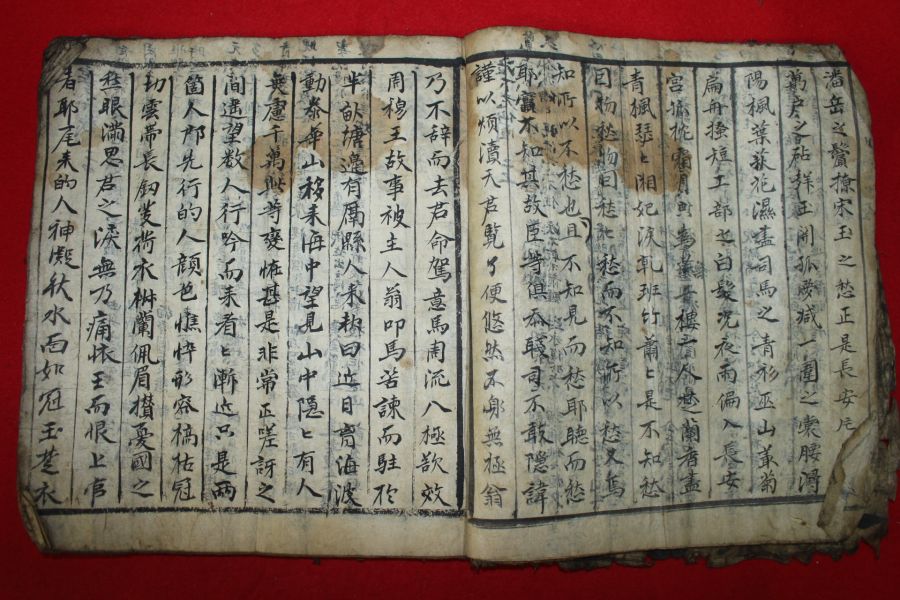 潘岳之鬢撩宋玉之愁正是長安片
萬戶之砧擇正開孤夢减一圍之衰腰潯
陽楓葉荻花濕盡司馬之青衫巫山菊
扁舟撩短工部之白髮况夜雨偏入長安
宮樓者盡
青楓瑟〻湘妃淚乹班竹蕭〻是不知愁
目物愁物目愁而不知所以愁又焉
知所以不愁也且不知見而愁耶聽而愁
耶實不知其故臣等俱忝職司不敢隱諱
謹以煩瀆天君覽了便悠然不樂無極翁
乃不辞而去君命駕意馬周流八極欲效
周穆王故事被主人翁叩馬苦諫而駐於
半畝塘邊有鬲縣人来報曰近日胷海波
動泰華山移来海中望見山中隱〻有人
無慮千萬此等變恠甚是非常正嗟訝之
間遥望数人行吟而来看〻漸近只是兩
箇人那先行的人顔色憔悴形容槁枯冠
切雲帶長釰芰荷衣椒蘭佩眉攢憂國之
愁眼滿思君之淚無乃痛懷王而恨上官
者耶尾来的人神凝秋水面如冠玉楚衣